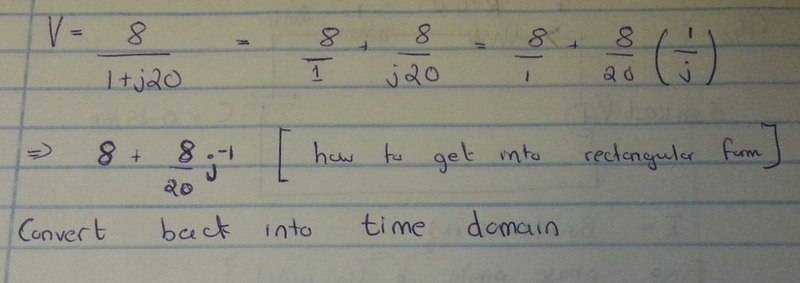 V = 8/(1+j20) = 8/1 + 8/j20 = 8/1 + 8/20 (1/j)
⇒ 8 + 8/20 j⁻¹ [how to get into rectangular form]
Convert back into time domain